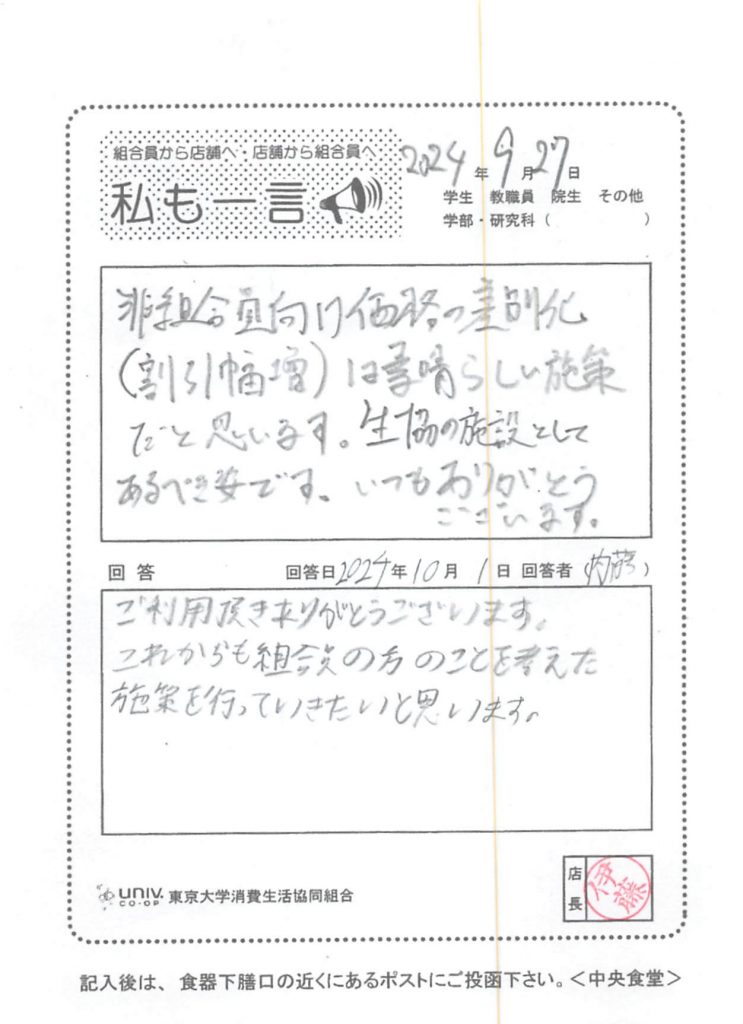 組合員から店舗へ・店舗から組合員へ
私も一言
2024年9月27日
学生 教職員 院生 その他
学部・研究科（ ）
非組合員向け価格の差別化
(割引幅増)は素晴らしい施策
だと思います。生協の施設として
あるべき姿です。いつもありがとう
ございます。
回答 回答日2024年10月1日 回答者（内藤）
ご利用頂きありがとうございます。
これからも組合員の方のことを考えた
施策を行っていきたいと思います。
UNIV. CO-OP 東京大学消費生活協同組合
店長 伊藤
記入後は、食器下膳口の近くにあるポストにご投函下さい。＜中央食堂＞